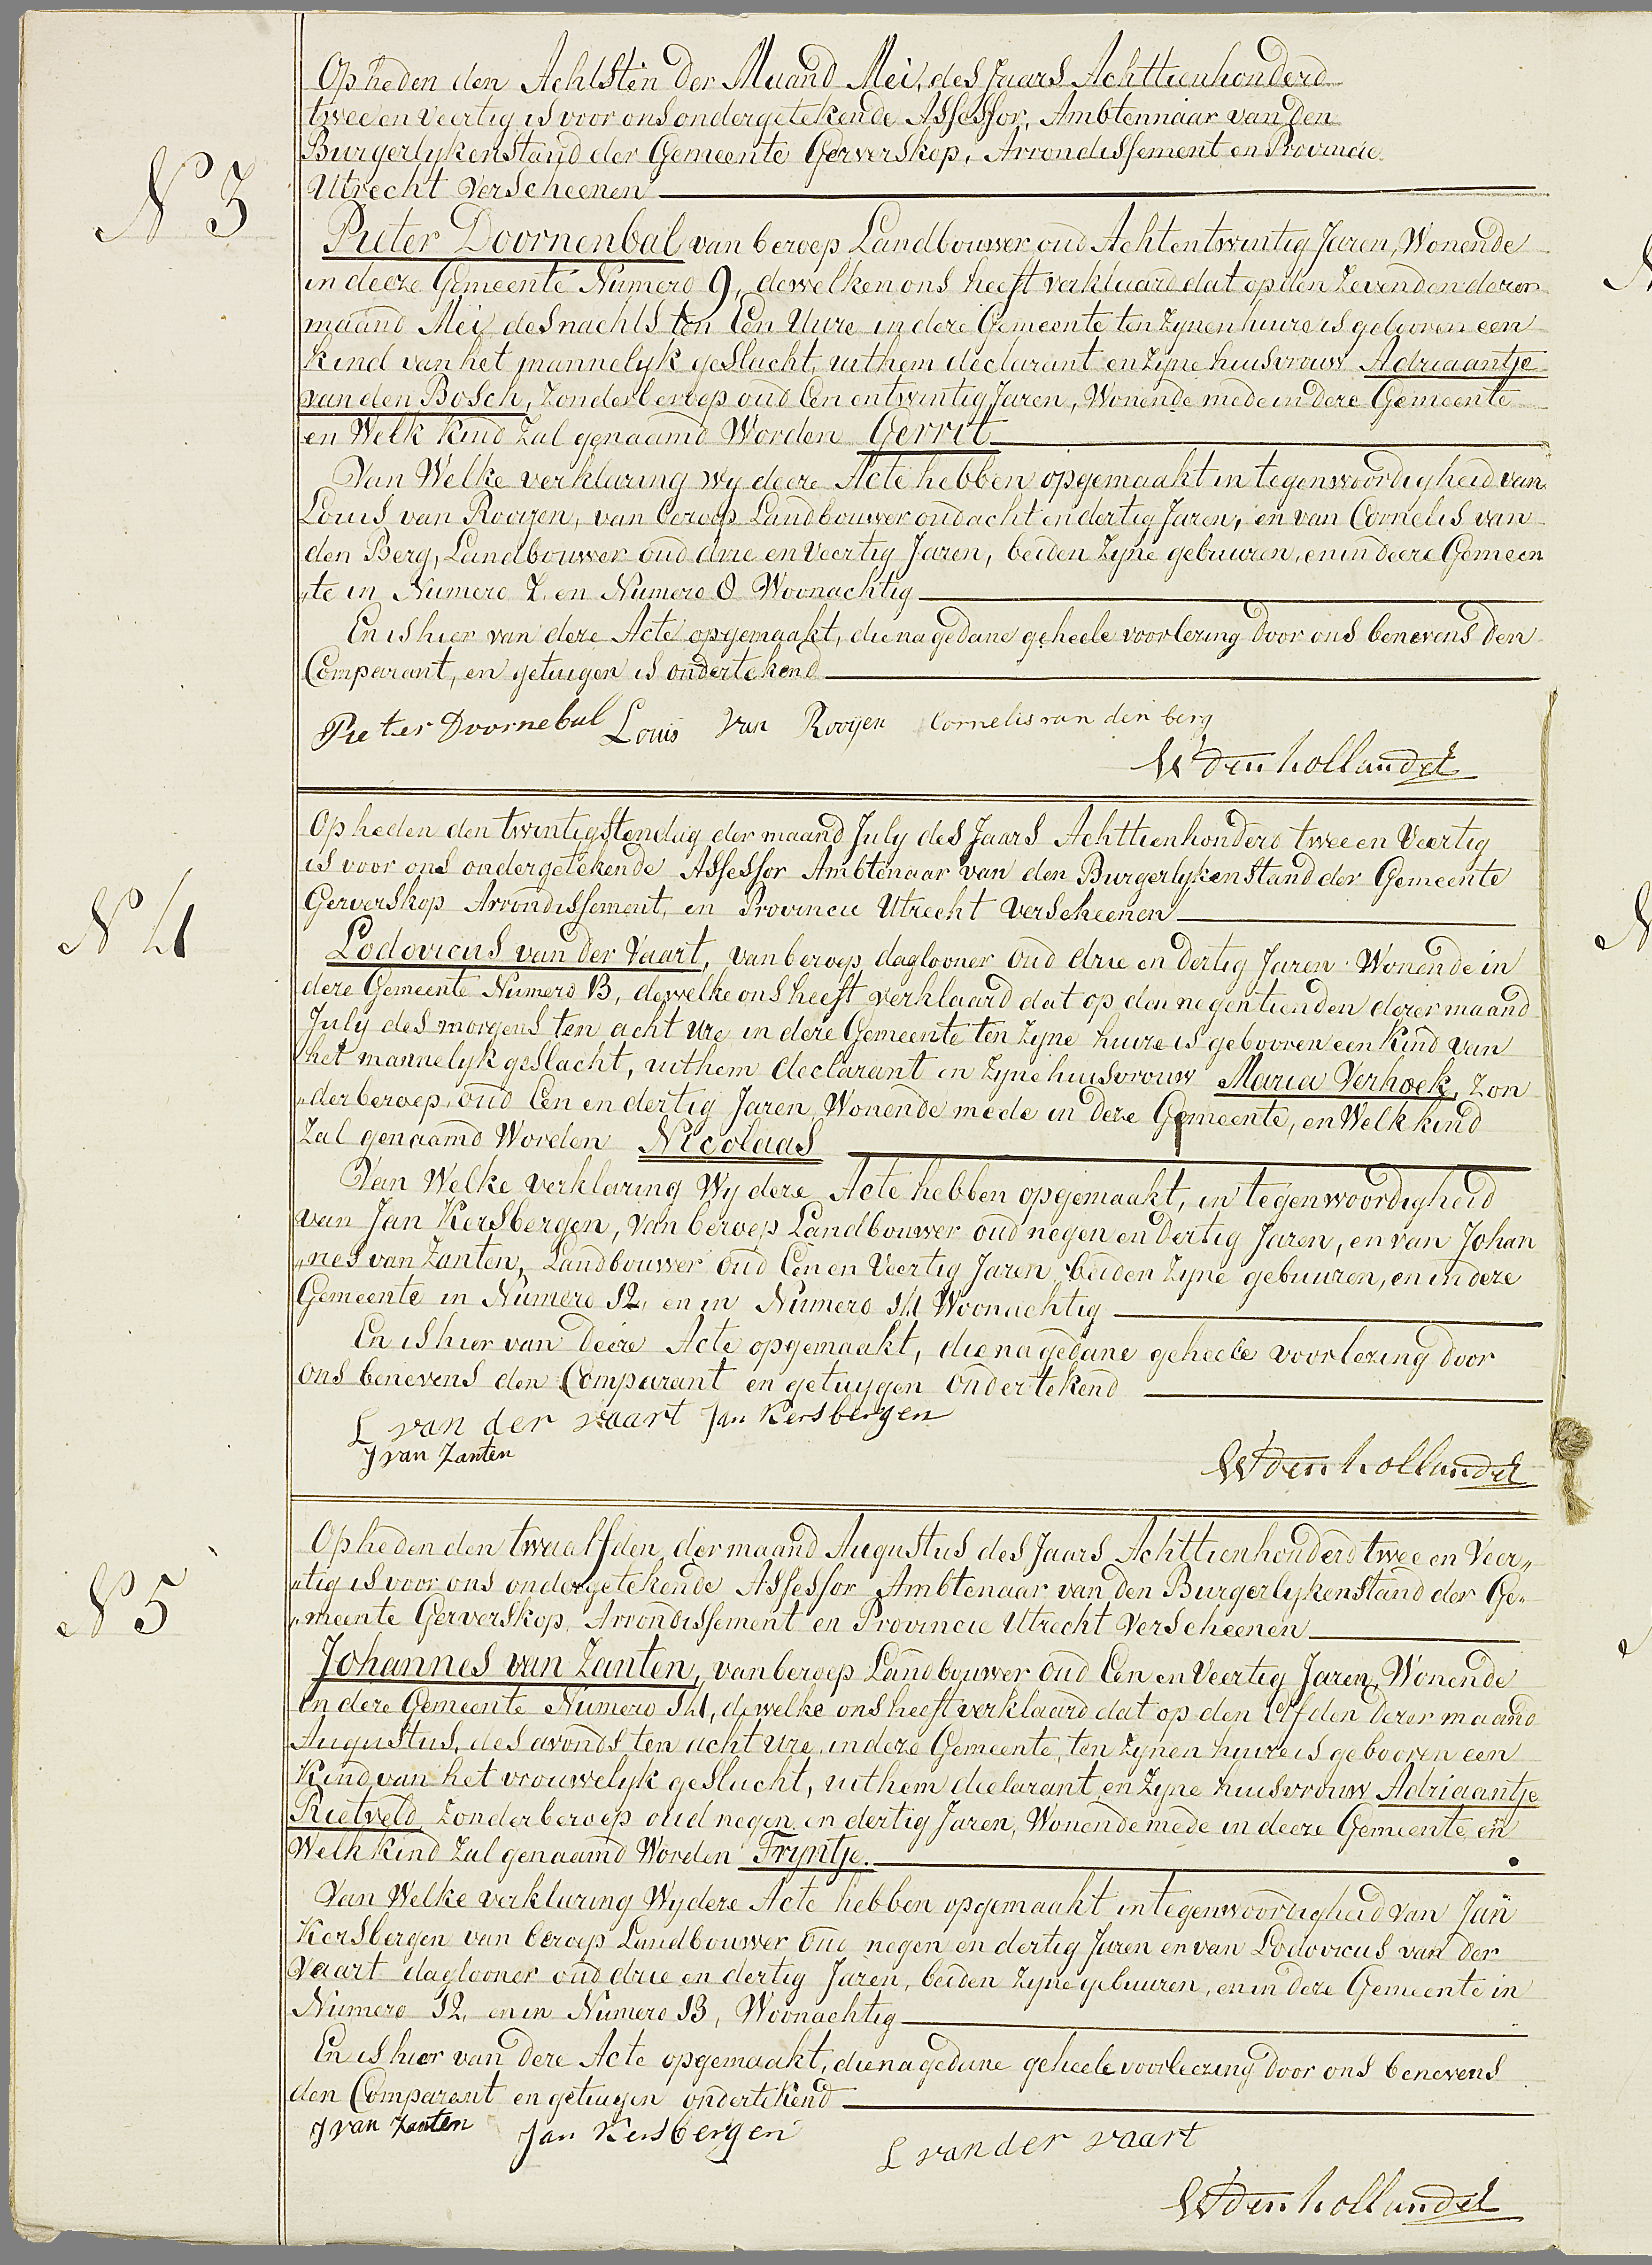 N 3
Op heden den Achtsten der Maand Mei, des Jaars Achttienhonderd
twee en veertig is voor ons ondergetekende Assessor, Ambtennaar van den
Burgerlyken Stand der Gemeente Gerverskop, Arrondissement en Provincie
Utrecht Verscheenen
Pieter Doornenbal van beroep Landbouwer oud Achtentwintig Jaren, Wonende
in deeze Gemeente Numero 9, dewelken ons heeft verklaard dat op den Zevenden dezer
maand Mei des nachts ten Een Uure in deze Gemeente ten Zynen huize is gebooren een
kind van het mannelyk geslacht, uit hem declarant en Zyne huisvrouw Adriaantje
van den Bosch, Zonder beroep oud Een entwintig Jaren, Wonende mede in deze Gemeente
en Welk Kind Zal genaamd Worden Gerrit
Van Welke verklaring wy deeze Acte hebben opgemaakt in tegenwoordigheid van
Louis van Rooyen, van beroep Landbouwer oud acht en dertig Jaren, en van Cornelis van
den Berg, Landbouwer oud drie en Veertig Jaren, beiden Zyne gebuuren, en in deeze Gemeen
"te in Numero 7 en Numero 8 Woonachtig
En is hier van deze Acte opgemaakt, die na gedane geheele voorlezing door ons benevens den
Comparant, en getuigen is ondertekend
Pieter Doornebal Louis van Rooijen Cornelis van den berg
W den hollander
N 4
Op heden den twintigsten dag der maand July des Jaars Achttienhonderd twee en Veertig
is voor ons ondergetekende Assessor Ambtenaar van den Burgerlyken Stand der Gemeente
Gerverskop Arrondissement, en Provincie Utrecht Verscheenen
Lodovicus van der Vaart, van beroep daglooner oud drie en dertig Jaren Wonende in
deze Gemeente Numero 13, dewelke ons heeft verklaard dat op den negentienden dezer maand
July des morgens ten acht ure in deze Gemeente ten Zyne huize is gebooren een Kind van
het mannelyk geslacht, uit hem declarant en Zyne huisvrouw Maria Verhoek, Zon
"der beroep, oud Een en dertig Jaren Wonende mede in deze Gemeente, en Welk kind
Zal genaamd Worden Nicolaas
Van Welke verklaring Wy deze Acte hebben opgemaakt, in tegenwoordigheid
van Jan Kersbergen, van beroep Landbouwer oud negen en dertig Jaren, en van Johan
"nes van Zanten, Landbouwer oud Een en Veertig Jaren beiden Zyne gebuuren, en in deze
Gemeente in Numero 12, en in Numero 14 Woonachtig
En is hier van deeze Acte opgemaakt, die na gedane geheele voorlezing door
ons benevens den Comparant en getuygen ondertekend
L van der vaart Jan Kersbergen
J van Zanten
W den hollander
N 5
Op heden den twaalfden der maand Augustus des Jaars Achttienhonderd twee en Veer"
"tig is voor ons ondergetekende Assessor Ambtenaar van den Burgerlyken Stand der Ge"
"meente Gerverskop, Arrondissement en Provincie Utrecht Verscheenen
Johannes van Zanten, van beroep Landbouwer oud Een en Veertig Jaren, Wonende
in deze Gemeente Numero 14, dewelke ons heeft verklaard dat op den Elfden dezer maand
Augustus, des avonds ten acht ure, in deze Gemeente, ten Zynen huize is gebooren een
Kind van het vrouwelyk geslacht, uit hem declarant en Zyne huisvrouw Adriaantje
Rietveld Zonder beroep oud negen en dertig Jaren, Wonende mede in deeze Gemeente en
Welk Kind Zal genaamd Worden Tryntje.
Van Welke verklaring Wy deze Acte hebben opgemaakt in tegenwoordigheid van Jan
Kersbergen van beroep Landbouwer oud negen en dertig Jaren en van Lodovicus van der
Vaart daglooner oud drie en dertig Jaren, beiden Zyne gebuuren, en in deze Gemeente in
Numero 12, en in Numero 13, Woonachtig
En is hier van deze Acte opgemaakt, die na gedane geheele voorleezing door ons benevens
den Comparant en getuigen ondertekend
J van Zanten Jan Kersbergen L van der vaart
W den hollander